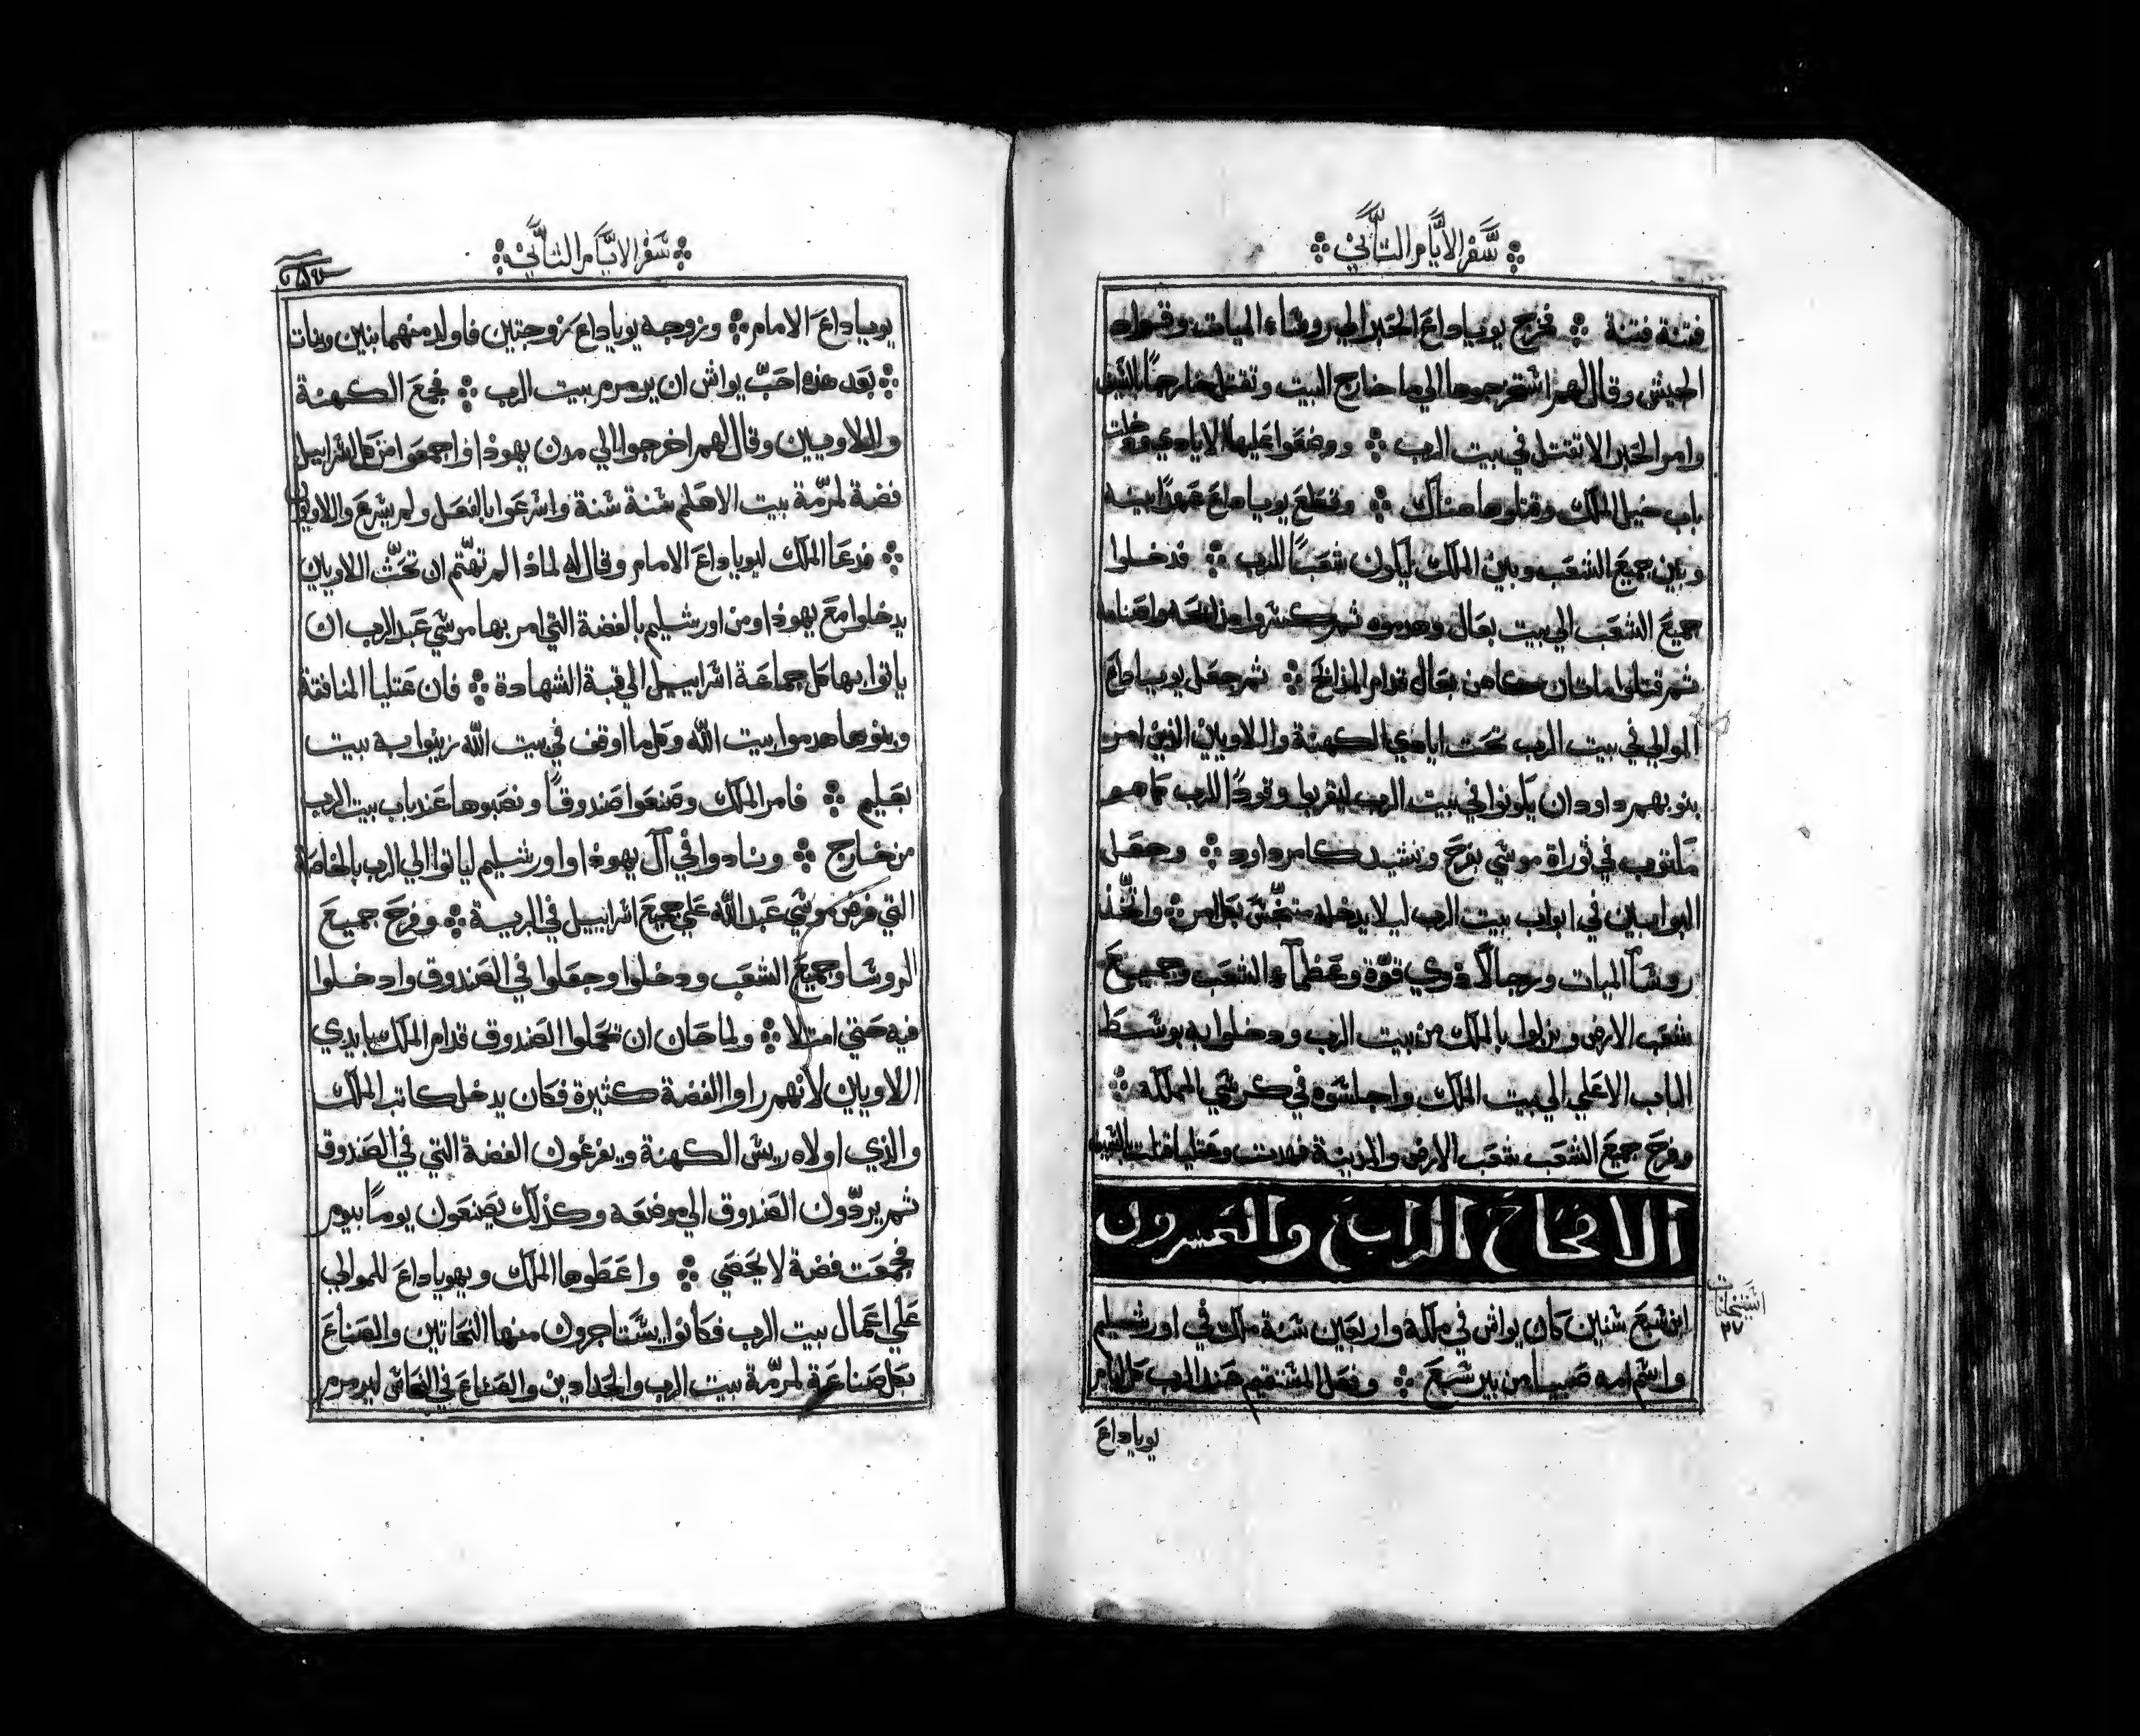 سفر الايام التاني
فتنة فتنة ۞ فخرج يوياداع الحبر الي روساء الميات وقواد
الجيش وقال لهم استخرجوها الي ما خارج البيت وتقتل خارجًا بالسيف
وامر الحبر الا تقتل في بيت الرب ۞ ووضعوا عليها الايادي ودخلت
باب خيل الملك وقتلوها هناك ۞ وقطع يوياداع عهدًا بينه
وبين جميع الشعب وبين الملك ليكون شعبًا للرب ۞ فدخلوا
جميع الشعب الي بيت بعال وهدموه ثم كسروا مذابحه واصنامه
ثم قتلوا ماتان كاهن بعال قدام المذابح ۞ ثم جعل يوياداع
الموالي في بيت الرب تحت ايادي الكهنة واللاويين الذين امر
بنوبهم داود ان يكونوا في بيت الرب ليقربوا وقودًا للرب كما هو
مكتوب في توراة موسي بفرح ونشيد كامر داود ۞ وجعل
البوابين في ابواب بيت الرب ليلا يدخله متنجس بكل امر ۞ واتخذ
روسآ الميات ورجالاً ذوي قوّة وعظمآء الشعب وجميع
شعب الارض ونزلوا بالملك من بيت الرب ودخلوا به بوسط
الباب الاعلي الي بيت الملك واجلسوه في كرسي المملكة ۞
وفرح جميع الشعب شعب الارض والمدينة فهدت وعتليا قتلت بالسيف
الاصحاح الرابع والعشرون
ابن سبع سنين كان يواش في ملكه واربعين سنة ملك في اورشليم
واسم امه صبيا من بير سبع ۞ وفعل المستقيم عند الرب كل ايام
يوياداع
٢٧
سفر الايام التاني
يوياداع الامام ۞ وزوجه يوياداع بزوجتين فاولد منهما بنين وبنات
۞ بعد هذه احبّ يواش ان يرمرم بيت الرب ۞ فجمع الكهنة
واللاويين وقال لهم اخرجوا الي مدن يهوذا واجمعوا من كل اسراييل
فضة لمرّمة بيت الاهكم سنة سنة واسرعوا بالفعل ولم يسرع واللاويون
۞ فدعا الملك ليوياداع الامام وقال له لماذا لم تهتّم ان تحثّ اللاويين
يدخلوا مع يهوذا ومن اورشليم بالفضة التي امر بها موسي عبد الرب ان
ياتوا بها كل جماعة اسراييل الي قبة الشهادة ۞ فان عتليا المنافقة
وبنوها هدموا بيت الله وكل ما اوقف في بيت الله زينوا به بيت
بعليم ۞ فامر الملك وصنعوا صندوقًا ونصبوها عند باب بيت الرب
من خارج ۞ ونادوا في آل يهوذا واورشليم لياتوا الي الرب بالخاصة
التي فرض موسي عبد الله علي جميع اسراييل في البرية ۞ وفرح جميع
الروسا وجميع الشعب ودخلوا وجعلوا في الصندوق وادخلوا
فيه حتي امتلا ۞ ولما حان ان تحملوا الصندوق قدام الملك بايدي
اللاويين لانهم راوا الفضة كثيرة فكان يدخل كاتب الملك
والذي اولاه ريش الكهنة ويفرغون الفضة التي في الصندوق
ثم يردّون الصندوق الي موضعه وكذلك يصنعون يومًا بيوم
فجمعت فضة لا تحصي ۞ واعطوها الملك ويهوياداع للموالي
علي اعمال بيت الرب فكانوا يستاجرون منها النحاتين والصناع
بكل صناعة لمرّمة بيت الرب والحدادين والصناع في النحاس ليرمرم